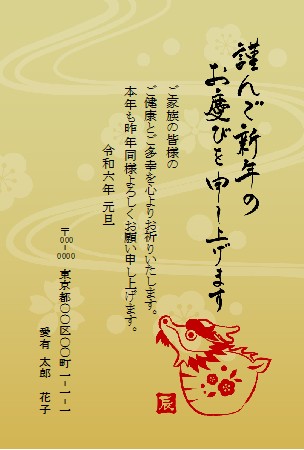 謹んで新年の
お慶びを申し上げます
ご家族の皆様の
ご健康とご多幸を心よりお祈りいたします。
本年も昨年同様よろしくお願い申し上げます。
令和六年 元旦
〒000-0000
東京都〇〇区〇〇町一-一-一
愛有 太郎
花子
辰